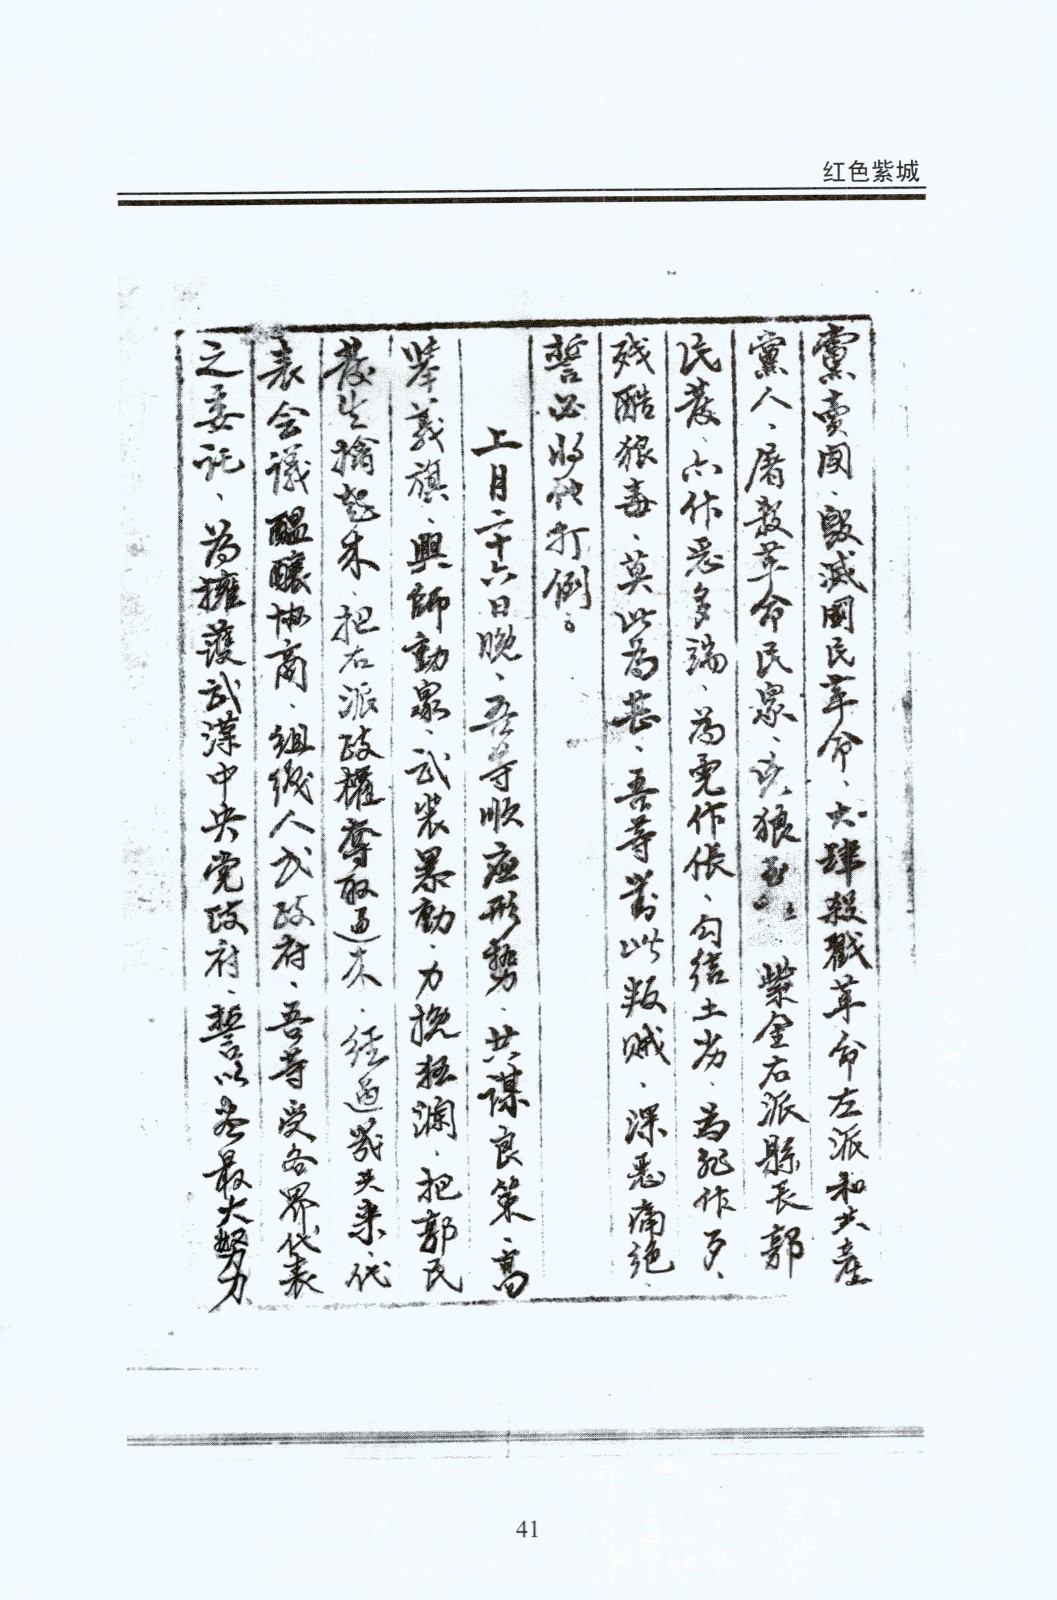 红色紫城
黨卖国、毁滅國民革命、大肆殺戮革命左派和共產
黨人、屠殺革命民眾、 狼 紫金右派縣長郭
民發、亦作恶多端、為虎作伥、勾结土劣、為非作歹、
残酷狼毒、莫此為甚、吾等對此叛贼、深恶痛絶、
誓必将他打倒。
上月二十六日晚、吾等順应形勢、共謀良策、高
举義旗、興師動眾、武装暴動、力挽狂澜、把郭民
發生擒起来、把右派政權奪取过来、经过眾 代
表会議醖釀協商、组織人民政府、吾等受各界代表
之委託、為擁護武漢中央党政府、誓以 最大努力
41